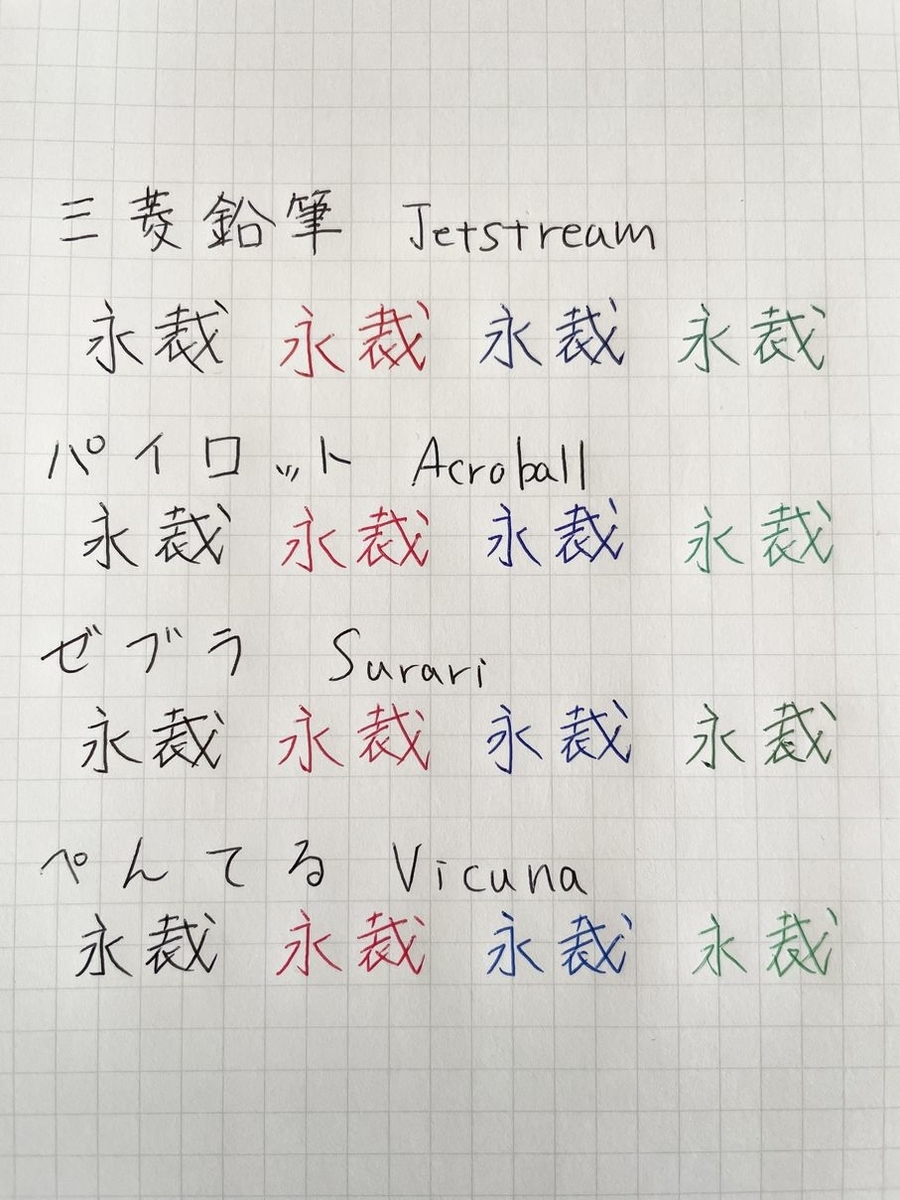 三菱鉛筆 Jetstream
永裁 永裁 永裁 永裁
パイロット Acroball
永裁 永裁 永裁 永裁
ゼブラ Surari
永裁 永裁 永裁 永裁
ぺんてる Vicuna
永裁 永裁 永裁 永裁